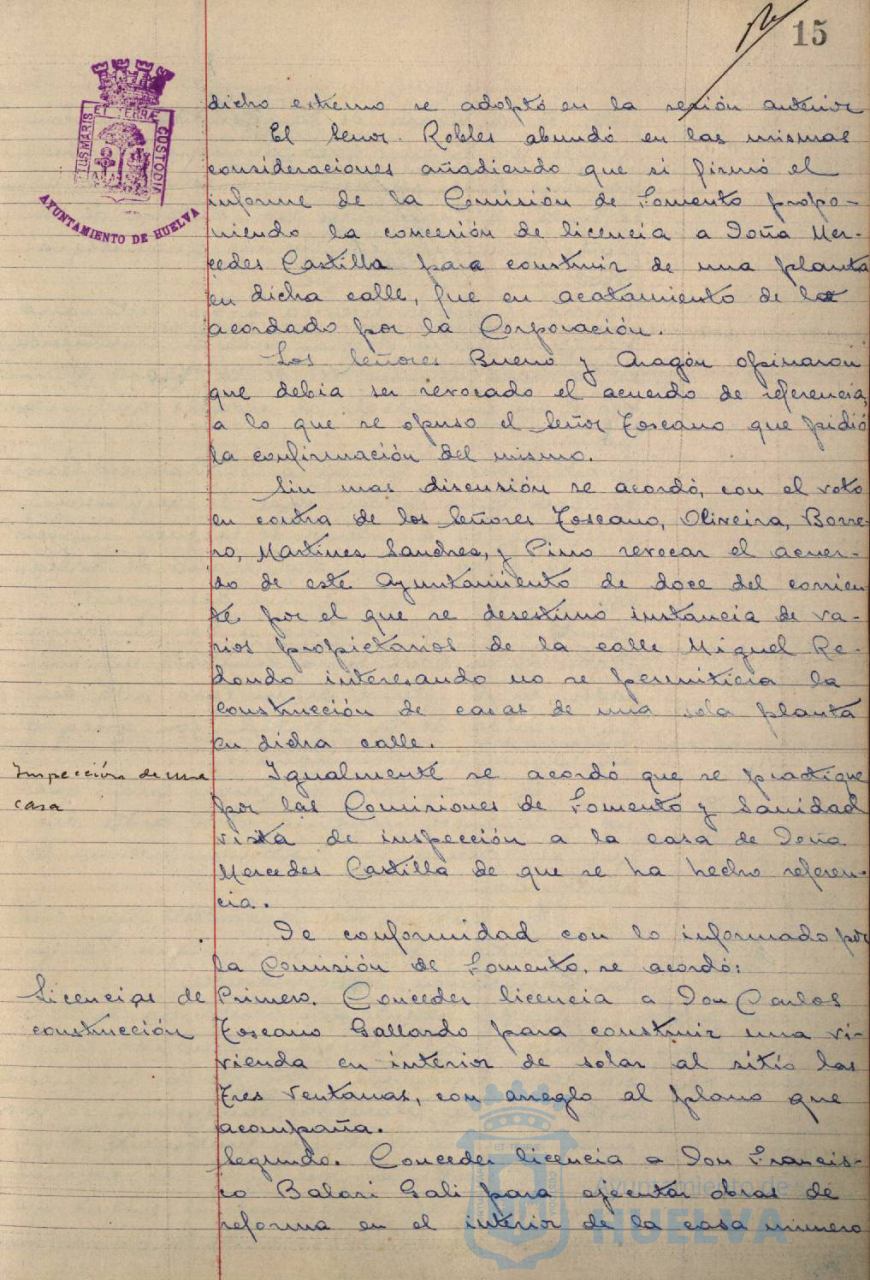 15
dicho extremo se adoptó en la sesión anterior
El Señor Robles abundó en las mismas
consideraciones añadiendo que si firmó el
informe de la Comisión de Fomento propo-
niendo la concesión de licencia a Doña Mer-
cedes Castilla para construir de una planta
en dicha calle, fue en acatamiento de lo
acordado por la Corporación.
Los Señores Bueno y Aragón opinaron
que debia ser revocado el acuerdo de referencia,
a lo que se opuso el Señor Toscano que pidió
la confirmación del mismo.
Sin mas discusión se acordó, con el voto
en contra de los Señores Toscano, Oliveira, Borre-
ro, Martines Sandres, y Pino revocar el acuer-
do de este Ayuntamiento de doce del corrien-
te por el que se desestimó instancia de va-
rios propietarios de la calle Miguel Re-
dondo interesando no se permitiera la
construcción de casas de una sola planta
en dicha calle.
Inspección de una
casa
Igualmente se acordó que se practique
por las Comisiones de Fomento y Sanidad
visita de inspección a la casa de Doña
Mercedes Castilla de que se ha hecho referen-
cia.
De conformidad con lo informado por
la Comisión de Fomento, se acordó:
Licencias de
construcción
Primero. Conceder licencia a Don Carlos
Toscano Gallardo para construir una vi-
vienda en interior de solar al sitio las
Tres Ventanas, con arreglo al plano que
acompaña.
Segundo. Conceder licencia a Don Francis-
co Balari Gali para ejecutar obras de
reforma en el interior de la casa número
ET TERRAE
CUSTODIA
TUS MARIS
AYUNTAMIENTO DE HUELVA
Ayuntamiento de
HUELVA